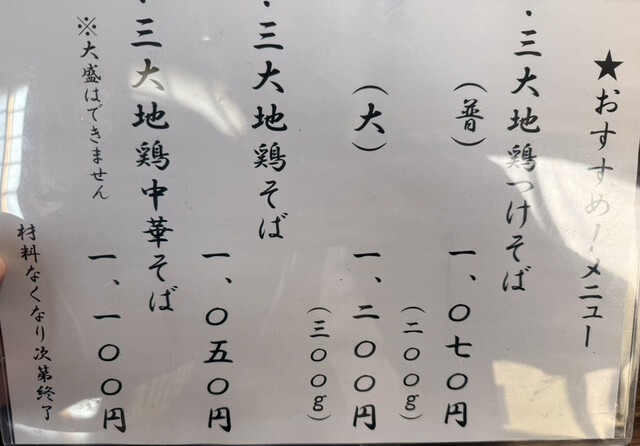 ★おすすめ！メニュー
・三大地鶏つけそば
（普） 一、〇七〇円
（二〇〇g）
（大） 一、二〇〇円
（三〇〇g）
・三大地鶏そば
一、〇五〇円
・三大地鶏中華そば
一、一〇〇円
※大盛はできません
材料なくなり次第終了